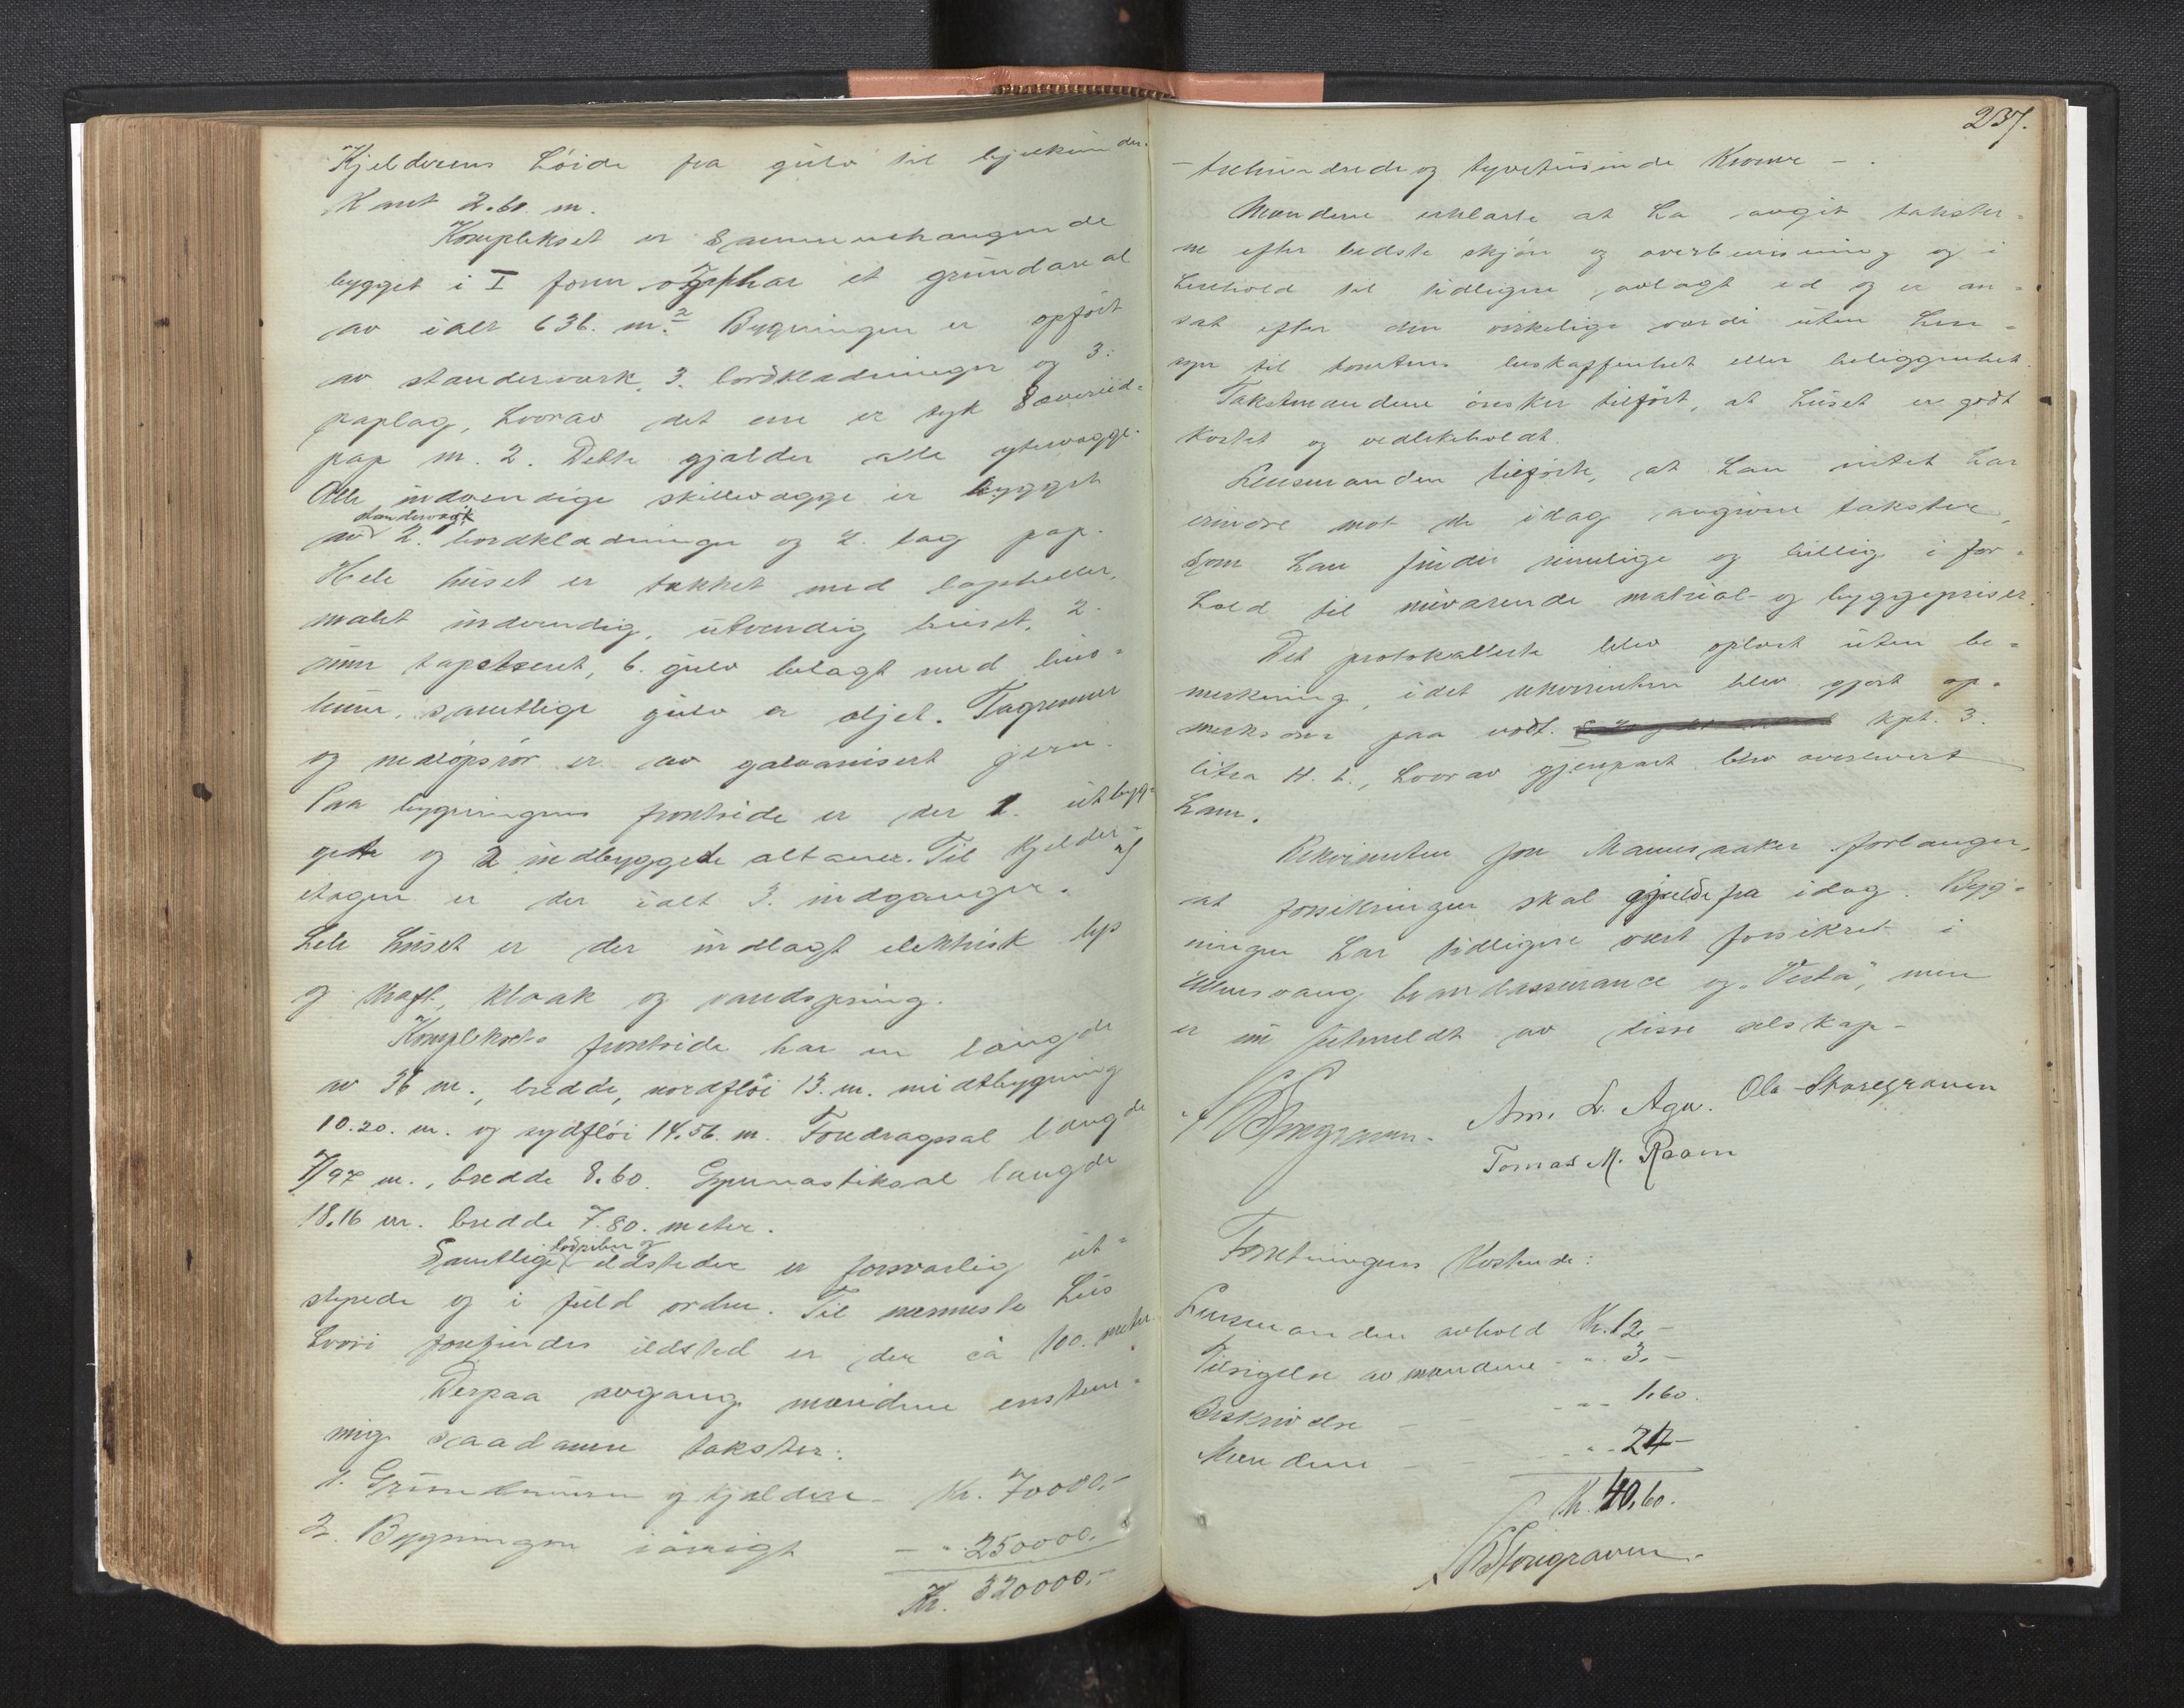 Kjelderens høide fra gulv til bjelkeunder-
kant 2.60. m.
Komplekset er sammenhængende
bygget i I form og har et grundareal
av ialt 636. m.² Bygningen er opført
av standerverk, 3. bordklædninger og 3.
paplag, hvorav det ene er tyk
pap m. 2. Dette gjælder alle ytervægge.
Alle indvendige skillevægge er bygget
standerverk
av 2. bordklædninger og 2. lag pap.
Hele huset er tækket med lapheller,
malt indvendig, utvendig huset, 2.
rum tapetsert, 6. gulv belagt med lino-
leum, samtlige gulv er oljet. Tagrenner
og nedløpsrør er av galvanisert jern.
Paa bygningens frontside er der 1. utbyg-
get og 2 indbyggede altaner. Til kjelder-
etagen er der ialt 3. indganger. I
hele huset er der indlagt elektrisk lys
og kraft, kloak og vandspring.
Kompleksets frontside har en længde
av 36 m., bredde, nordfløi 13. m. midtbygning
10.20. m. og sydfløi 14.56. m. Foredragssal længde
7.97 m., bredde 8.60. Gymnastiksal længde
18.16 m. bredde 7.80. meter.
lodpiber og
Samtlige ildsteder er forsvarlig ut-
styrede og i fuld orden. Til nærmeste hus
hvori forefindes ildsted er der ca 100. meter.
Derpaa avgav mændene enstem-
mig saadanne takster:
1. Grundmuren og kjældere - Kr. 70000,-
2. Bygningen iøvrigt - " 250000,-
Kr. 320000,-
237.
- trehundredeogtyvetusinde Kroner - .
Mændene erklærte at ha avgit takster-
ne efter bedste skjøn og overbevisning og i
henhold til tidligere avlagt ed og er an-
sat efter den virkelige værdi uten hen-
syn til tomtens beskaffenhet eller beliggenhet.
Takstmændene ønsker tilført, at huset er godt
kostet og vedlikeholdt.
Lensmanden tilførte, at han intet har
erindre mot de idag avgivne takster,
som han finder rimelige og billig i for-
hold til nuværende material- og byggepriser.
Det protokollerte blev oplæst uten be-
merkning, idet rekvirenten blev gjort op-
merksom paa vedt. kpt. 3.
litra H. b., hvorav gjenpart blev overlevert
ham.
Rekvirenten Jon Mannsaaker forlanger,
at forsikringen skal gjælde fra idag. Byg-
ningen har tidligere vært forsikret i
Ullensvang brandassurance og "Vesta", men
er nu utmeldt av disse selskap -
Storegraven. Am. L. Aga. Ola Storegraven
Tomas M. Raam
Forretningens kostende:
Lensmanden avhold Kr. 12,-
Tilsigelse av mændene - " 3,-
Beskrivelse - - - " 1.60.
Mændene - - - " 24 -
Kr. 40,60.
Storegraven.